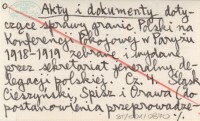 Akty i dokumenty doty-
czące sprawy granic Polski na
Konferencji Pokojowej w Paryżu
1918-1919 zebrane i wydane
przez sekretariat generalny de-
legacji polskiej. Cz. 4. Śląsk
Cieszyński, Spisz i Orawa do
postanowienia przeprowadze-